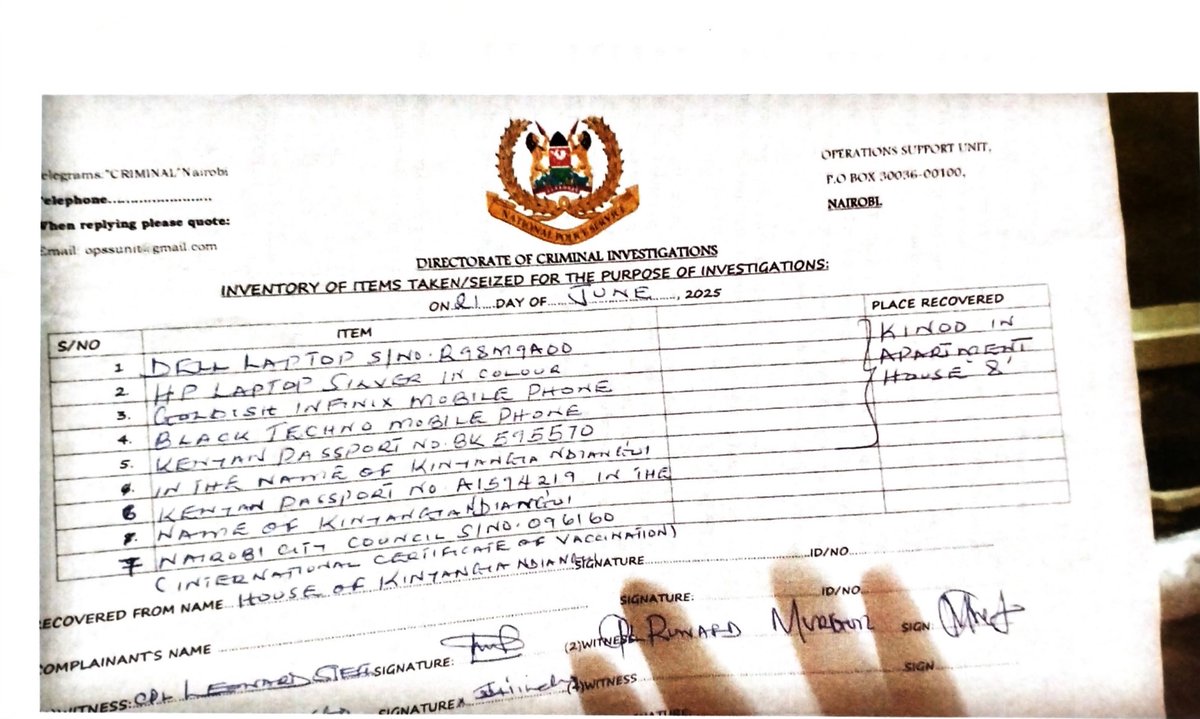 elegrams."CRIMINAL"Nairobi
elephone........................
When replying please quote:
Email: opssunit@gmail.com
OPERATIONS SUPPORT UNIT,
P.O BOX 30036-00100,
NAIROBI.
NATIONAL POLICE SERVICE
DIRECTORATE OF CRIMINAL INVESTIGATIONS
INVENTORY OF ITEMS TAKEN/SEIZED FOR THE PURPOSE OF INVESTIGATIONS:
ON 21 DAY OF JUNE, 2025
S/NO ITEM PLACE RECOVERED
1 DELL LAPTOP S/NO. R98M9A00
2. HP LAPTOP SILVER IN COLOUR
3. GOLDISH INFINIX MOBILE PHONE
4. BLACK TECHNO MOBILE PHONE
5. KENYAN PASSPORT NO. BK E95570
IN THE NAME OF KINYANGIA NDIANGUI
6 KENYAN PASSPORT NO A1574219 IN THE
NAME OF KINYANGIA NDIANGUI
7 NAIROBI CITY COUNCIL S/NO. 096160
(INTERNATIONAL CERTIFICATE OF VACCINATION)
KINOD IN
APARTMENT
HOUSE '8'
RECOVERED FROM NAME HOUSE OF KINYANGIA NDIANGUI SIGNATURE ID/NO
COMPLAINANT'S NAME SIGNATURE: ID/NO
WITNESS: CPL LEONARD SIGNATURE: (2)WITNESS SIGN:
SIGNATURE WITNESS SIGN